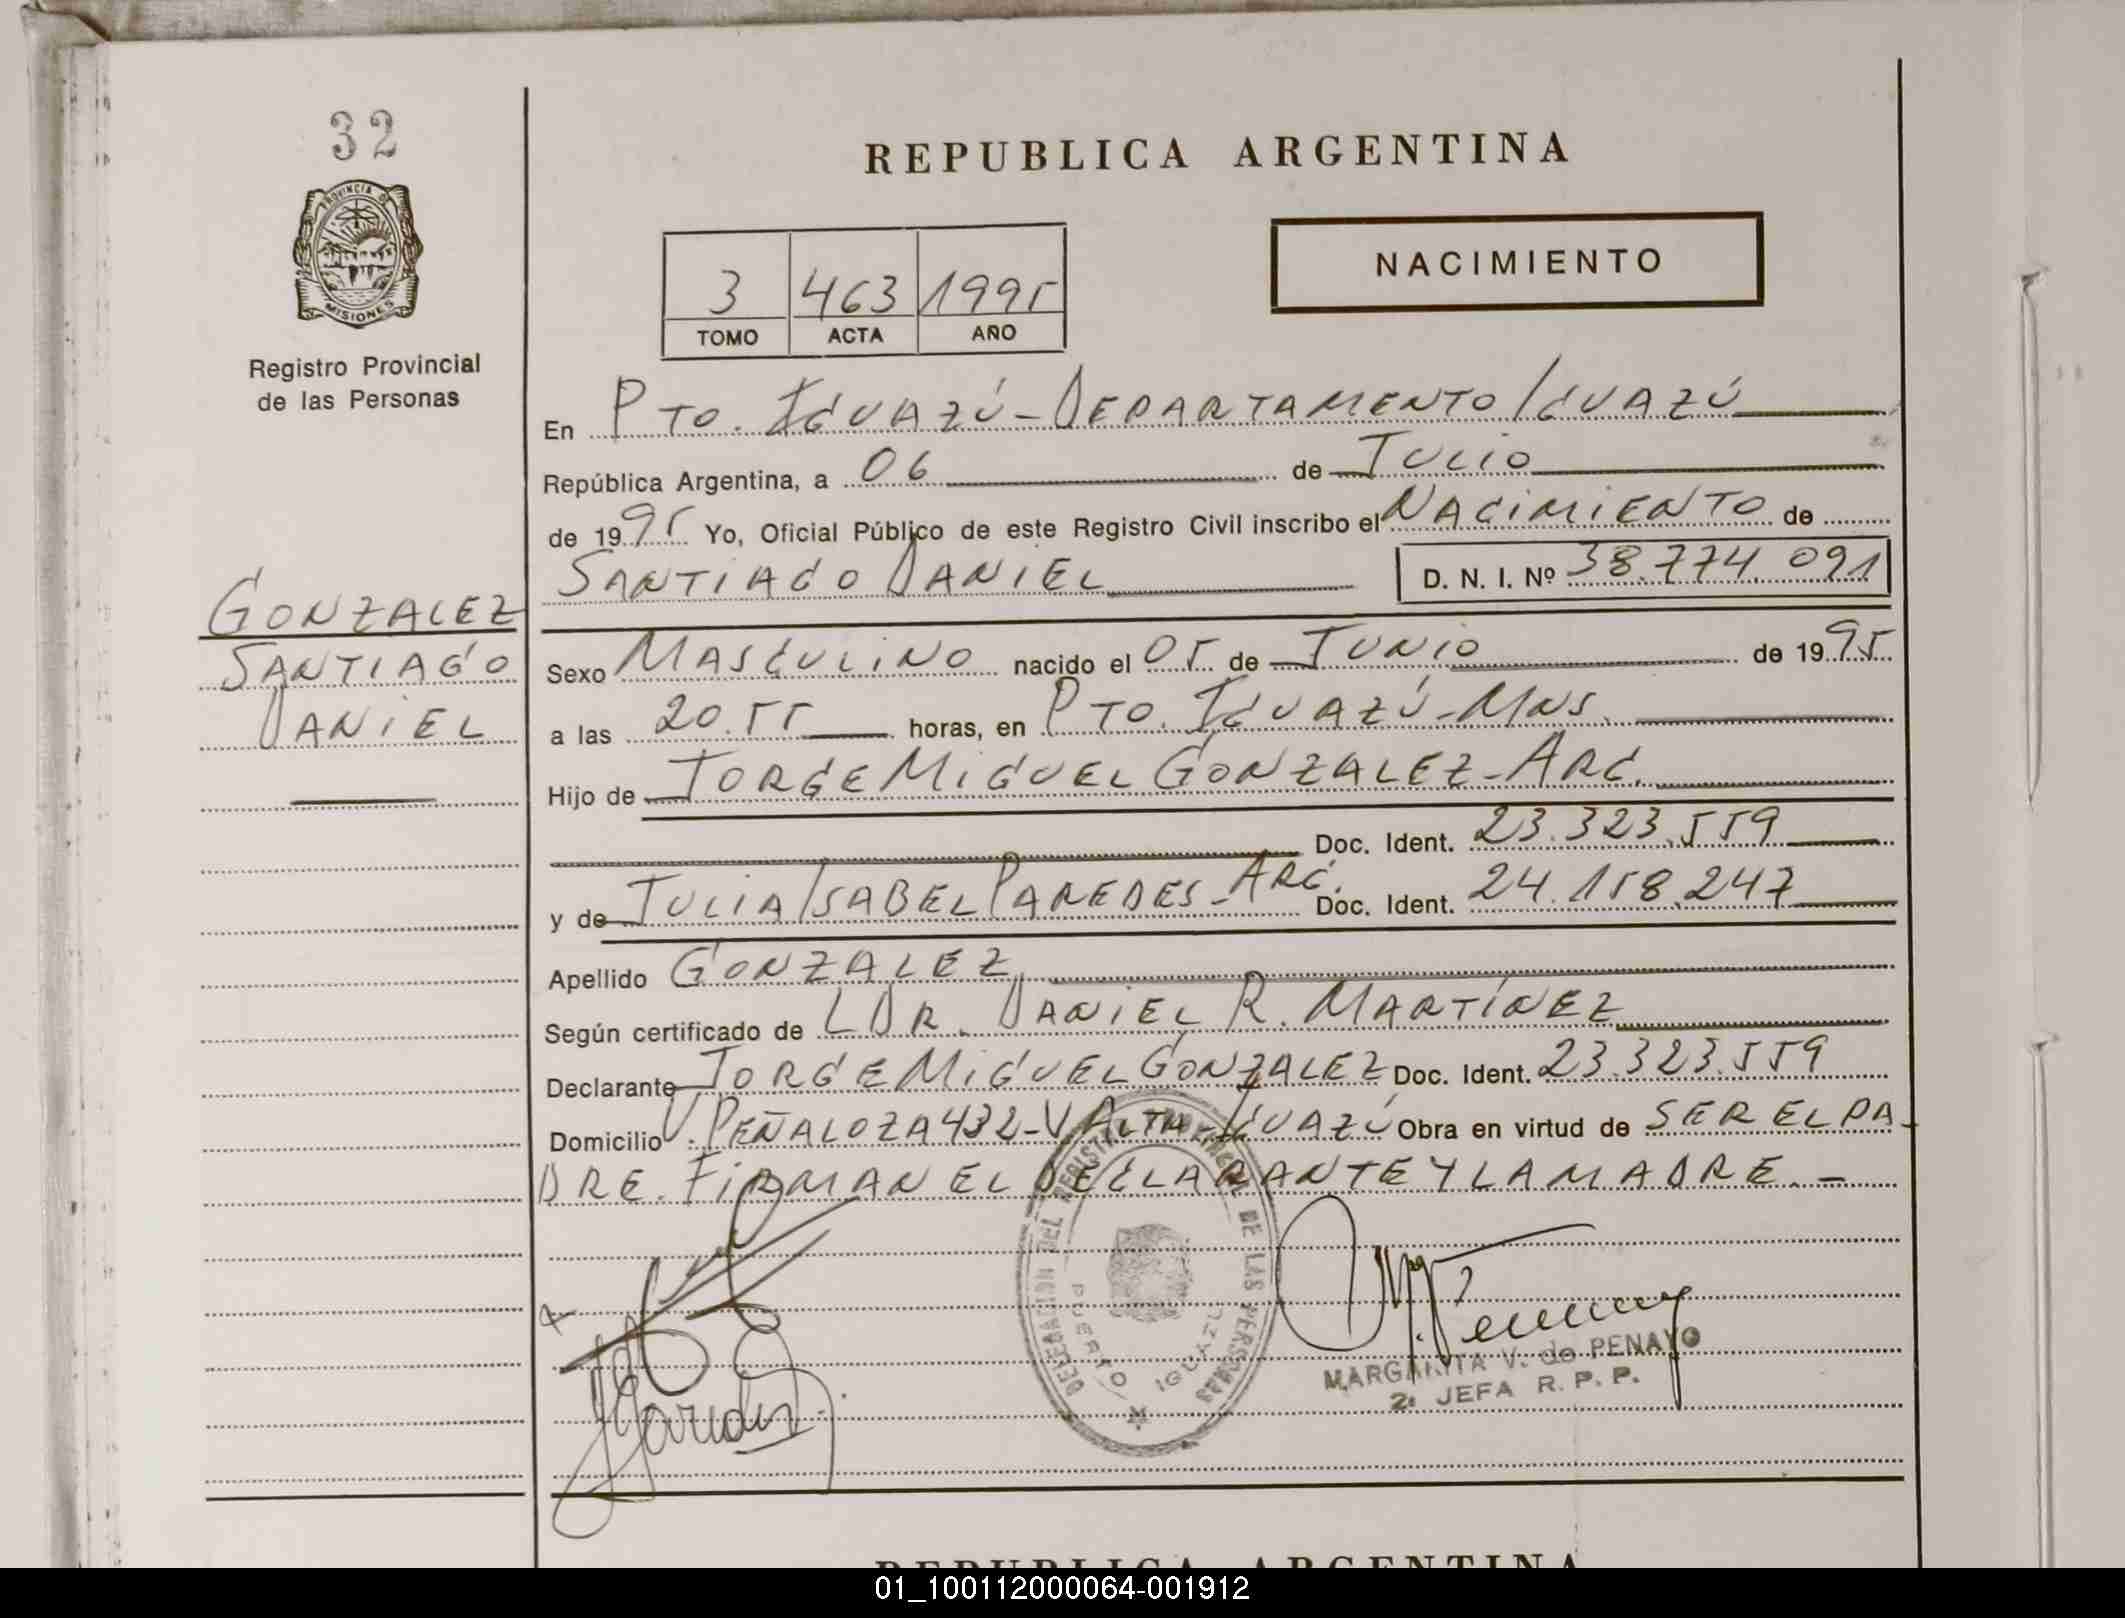 32
PROVINCIA DE
MISIONES
Registro Provincial
de las Personas
GONZALEZ
SANTIAGO
DANIEL
REPUBLICA ARGENTINA
3 463 1995
TOMO ACTA AÑO
NACIMIENTO
En PTO. IGUAZÚ - DEPARTAMENTO IGUAZÚ
República Argentina, a 06 de JULIO
de 1995 Yo, Oficial Público de este Registro Civil inscribo el NACIMIENTO de
SANTIAGO DANIEL D. N. I. Nº 38.774.091
Sexo MASCULINO nacido el 05 de JUNIO de 1995
a las 20.55 horas, en PTO. IGUAZÚ - MNS.
Hijo de JORGE MIGUEL GONZALEZ - ARG.
Doc. Ident. 23.323.559
y de JULIA ISABEL PAREDES - ARG. Doc. Ident. 24.158.247
Apellido GONZALEZ
Según certificado de L DR. DANIEL R. MARTÍNEZ
Declarante JORGE MIGUEL GONZALEZ Doc. Ident. 23.323.559
Domicilio V. PEÑALOZA 432 - V ALTA - IGUAZÚ Obra en virtud de SER EL PA-
DRE. FIRMAN EL DECLARANTE Y LA MADRE. -
DELEGACION DEL REGISTRO PROVINCIAL DE LAS PERSONAS
PUERTO IGUAZU
MARGARITA V. de PENAYO
2ª JEFA R. P. P.
REPUBLICA ARGENTINA
01_100112000064-001912